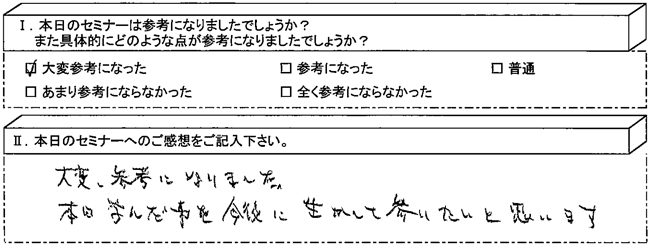 Ⅰ．本日のセミナーは参考になりましたでしょうか？
また具体的にどのような点が参考になりましたでしょうか？
☑ 大変参考になった　□ 参考になった　□ 普通
□ あまり参考にならなかった　□ 全く参考にならなかった
Ⅱ．本日のセミナーへのご感想をご記入下さい。
大変、参考になりました。
本日学んだ事を今後に生かして参りたいと思います